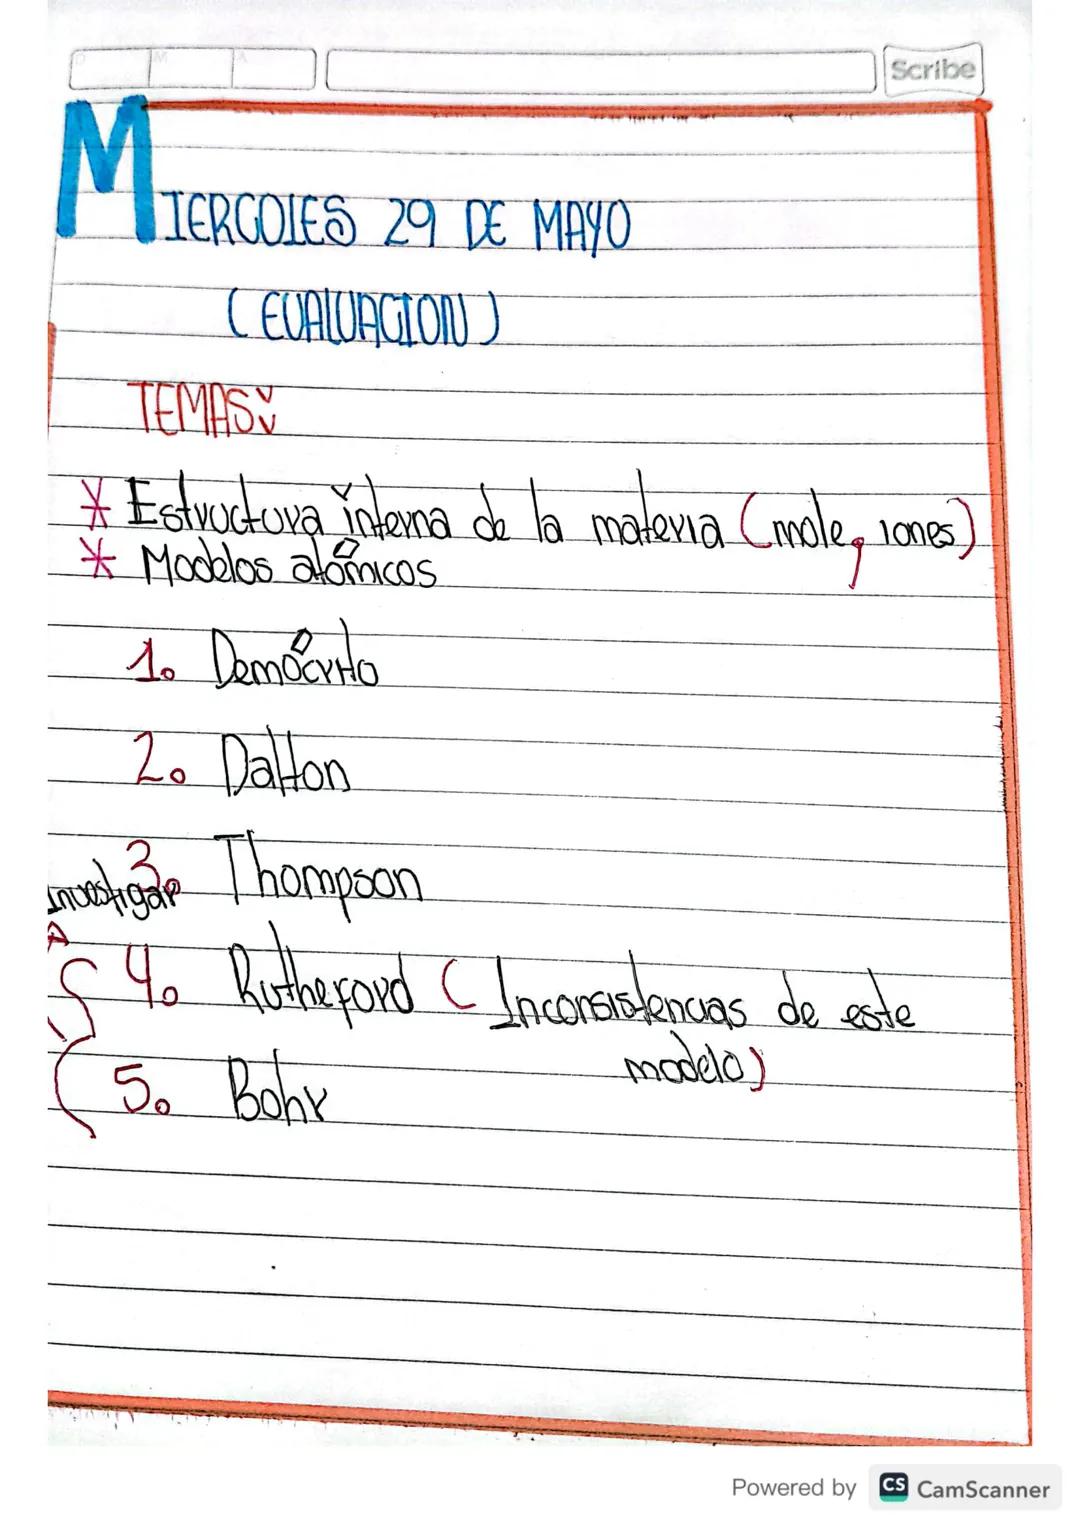 D M A
Scribe
MIERCOLES 29 DE MAYO
(EVALUACION)
TEMAS:
* Estructura interna de la materia (mole, iones)
* Modelos atómicos
1. Demócrito
2. Dalton
3. Thompson
Investigar
4. Rutherford ( Inconsistencias de este
modelo)
5. Bohr
Powered by CS CamScanner